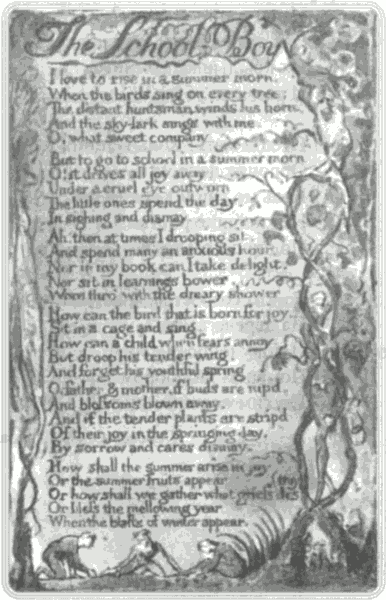 The School-Boy
I love to rise in a summer morn,
When the birds sing on every tree;
The distant huntsman winds his horn,
And the sky-lark sings with me
O, what sweet company
But to go to school in a summer morn
O! it drives all joy away
Under a cruel eye outworn
The little ones spend the day,
In sighing and dismay
Ah! then at times I drooping sit
And spend many an anxious hour,
Nor in my book can I take delight,
Nor sit in learnings bower
thro' with the dreary shower
How can the bird that is born for joy,
Sit in a cage and sing
How can a child when fears annoy
But droop his tender wing
And forget his youthful spring
O, father & mother, if buds are nip'd
And blossoms blown away,
And if the tender plants are strip'd
Of their joy in the springing day,
By sorrow and cares dismay,
How shall the summer arise in joy
Or the summer fruits appear
Or how shall we gather what griefs
Or bless the mellowing year
When the blasts of winter appear.